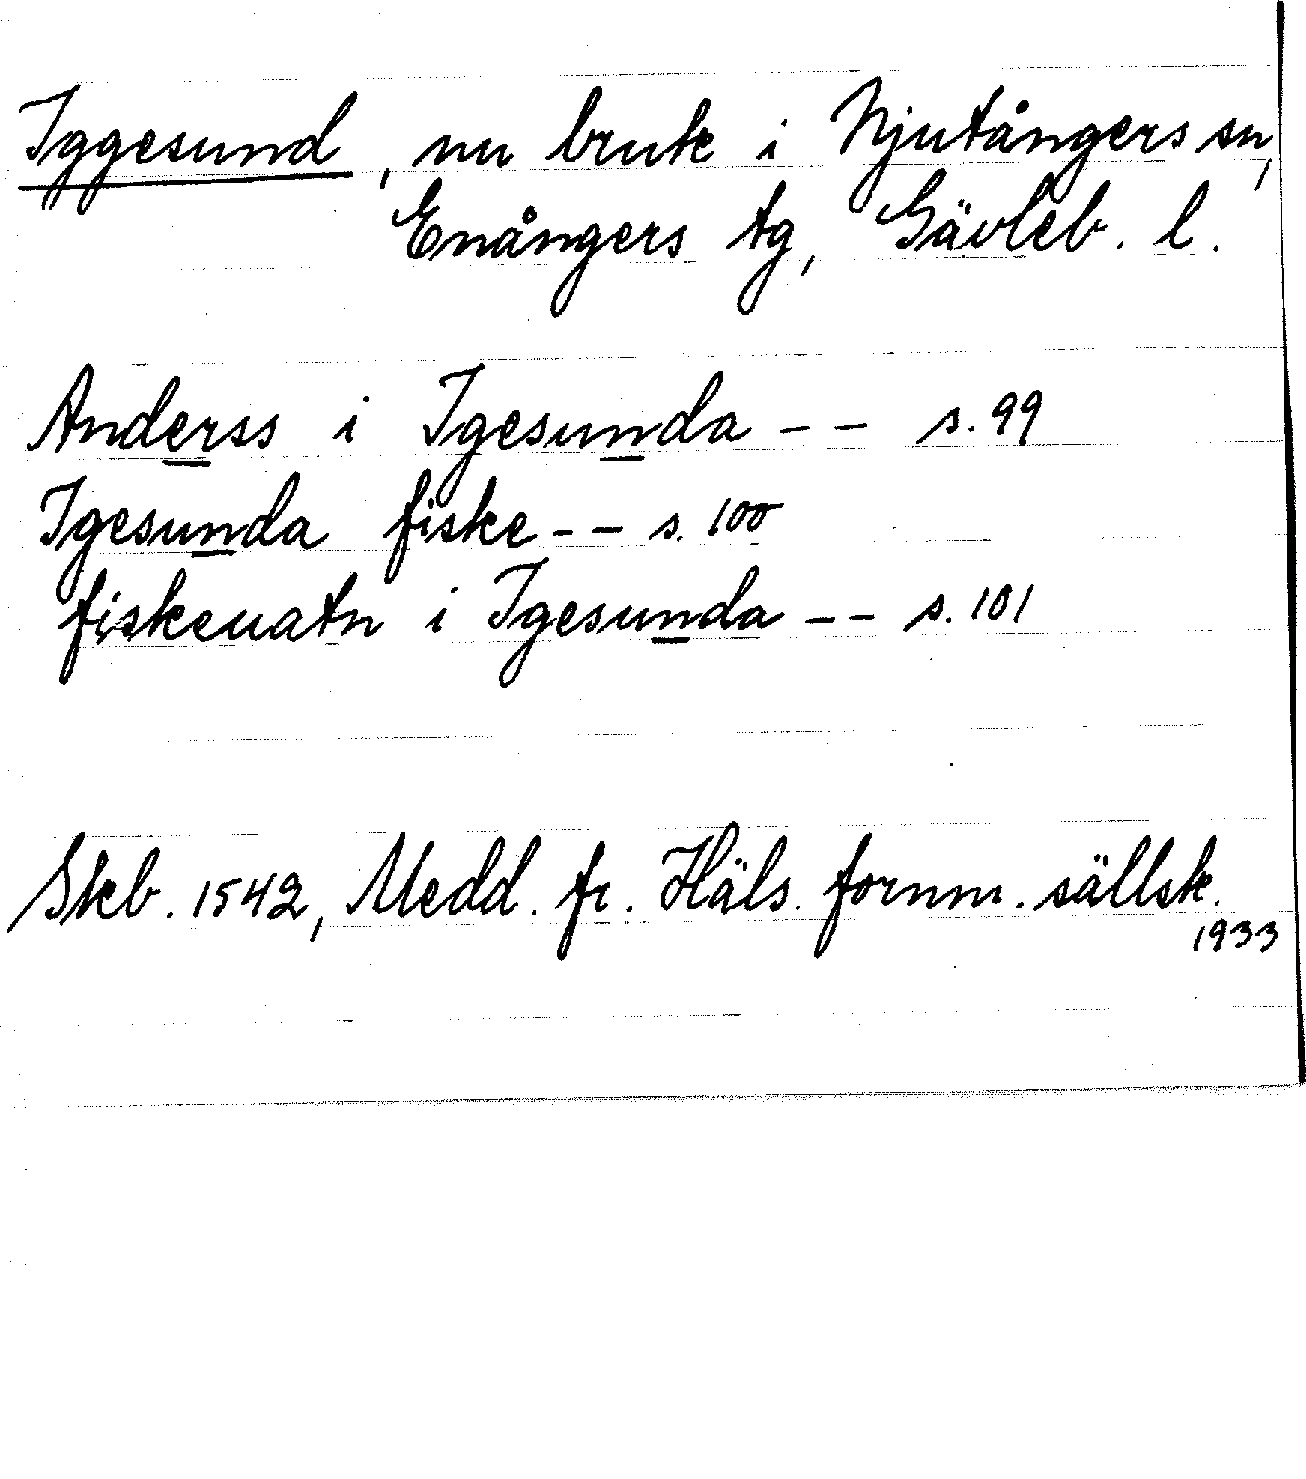 Iggesund, nu bruk i Njutångers sn,
Enångers tg, Gävleb. l.
Anderss i Igesunda -- s. 99
Igesunda fiske -- s. 100
fiskeuatn i Igesunda -- s. 101
Skb. 1542, Medd. fr. Häls. fornm. sällsk.
1933